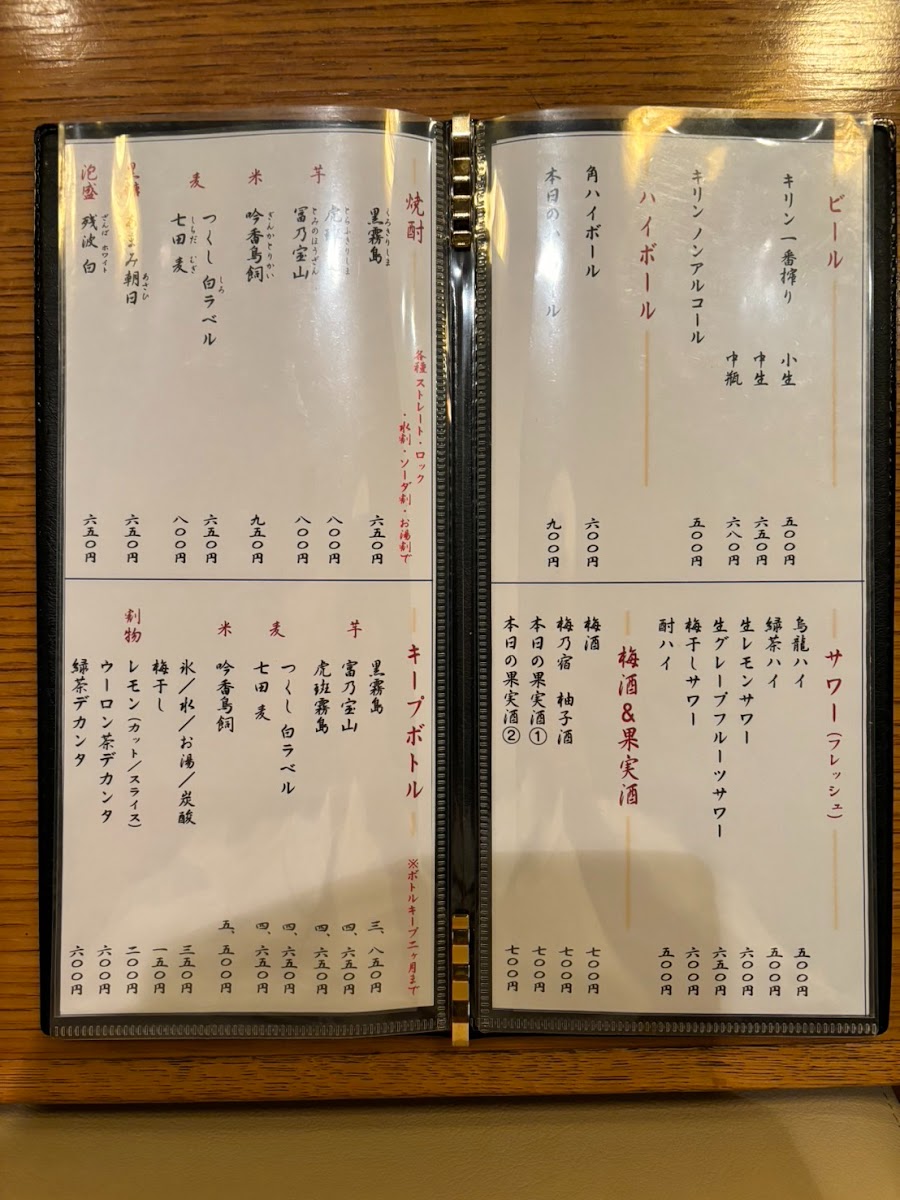 ビール
キリン一番搾り 小生 五〇〇円
中生 六五〇円
中瓶 六八〇円
キリンノンアルコール 五〇〇円
ハイボール
角ハイボール 六〇〇円
本日の ル 九〇〇円
サワー（フレッシュ）
烏龍ハイ 五〇〇円
緑茶ハイ 五〇〇円
生レモンサワー 六〇〇円
生グレープフルーツサワー 六五〇円
梅干しサワー 六〇〇円
酎ハイ 五〇〇円
梅酒&果実酒
梅酒 七〇〇円
梅乃宿 柚子酒 七〇〇円
本日の果実酒① 七〇〇円
本日の果実酒② 七〇〇円
焼酎
各種 ストレート・ロック
・水割・ソーダ割・お湯割で
芋 黒霧島 くろきりしま 六五〇円
虎斑 八〇〇円
富乃宝山 とみのほうざん 八〇〇円
米 吟香鳥飼 ぎんかとりかい 九五〇円
麦 つくし 白ラベル しろ 六五〇円
七田 麦 しちだ むぎ 八〇〇円
み朝日 あさひ 六五〇円
泡盛 残波 白 ざんぱ ホワイト 六五〇円
キープボトル
※ボトルキープ二ヶ月まで
芋 黒霧島 三、八五〇円
富乃宝山 四、六五〇円
虎斑霧島 四、六五〇円
麦 つくし 白ラベル 四、六五〇円
七田 麦 四、六五〇円
米 吟香鳥飼 五、五〇〇円
割物 氷／水／お湯／炭酸 三五〇円
梅干し 一五〇円
レモン（カット／スライス） 二〇〇円
ウーロン茶デカンタ 六〇〇円
緑茶デカンタ 六〇〇円